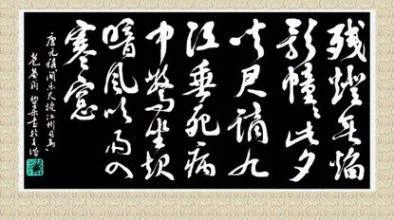 残灯无焰
影幢幢此夕
闻君谪九
江垂死病
中惊坐起
暗风吹雨入
寒窗
唐元稹闻乐天授江州司马